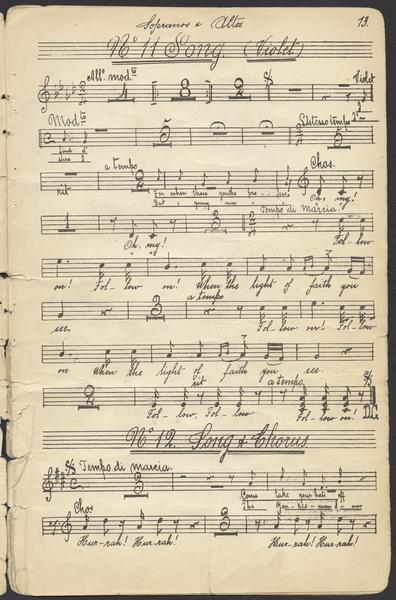 Sopranos & Altos 13.
No 11 Song. (Violet)
All.o mod.to Violet
4 8 2
Mod.to L'istesso tempo
5 5
a tempo Chos.
rit For when there you'the Oh, my!
But a young man
Tempo di Marcia.
1 3
Oh, my! Fol-low
on! Fol-low on! When the light of faith you
a tempo
see. 3 Fol-low on! Fol-low
on when the light of faith you see.
rit a tempo
2
Fol-low, Fol-low Fol-low on! D.C.
No 12. Song & Chorus
Tempo di marcia.
3
Come take your hats off
The
Chos.
Hur-rah! Hur-rah! Hur-rah! Hur-rah!